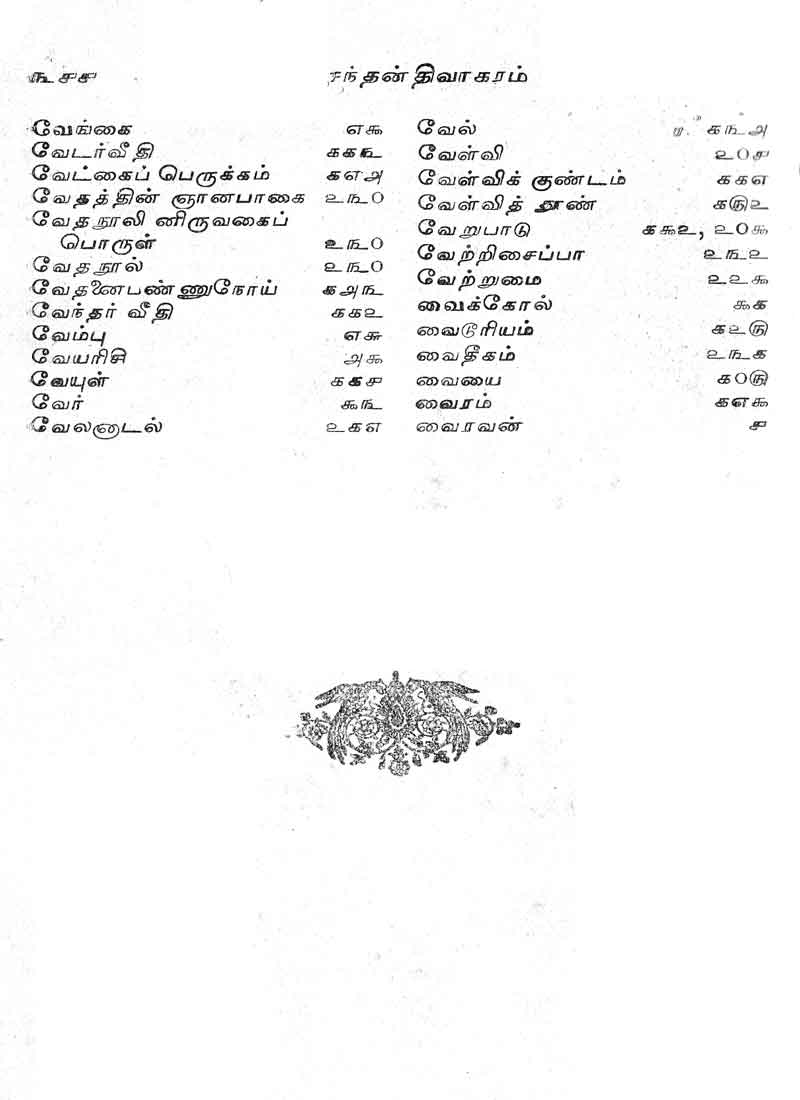 ௩௪௪ சந்தன் திவாகரம்
வேங்கை ௭௯
வேடர்வீதி ௧௧௩
வேட்கைப் பெருக்கம் ௧௭௮
வேதத்தின் ஞானபாகை ௨௩0
வேதநூலி னிருவகைப்
பொருள் ௨௩0
வேதநூல் ௨௩0
வேதனைபண்ணுநோய் ௧௮௩
வேந்தர் வீதி ௧௧௨
வேம்பு ௭௬
வேயரிசி ௮௯
வேயுள் ௧௧௪
வேர் ௯௩
வேலனாடல் ௨௧௭
வேல் ௧௩௮
வேள்வி ௨0௪
வேள்விக் குண்டம் ௧௧௭
வேள்வித் தூண் ௧௫௨
வேறுபாடு ௧௯௨, ௨0௯
வேற்றிசைப்பா ௨௩௨
வேற்றுமை ௨௨௯
வைக்கோல் ௯௧
வைடூரியம் ௧௨௫
வைதீகம் ௨௩௧
வையை ௧0௫
வைரம் ௧௭௯
வைரவன் ௪